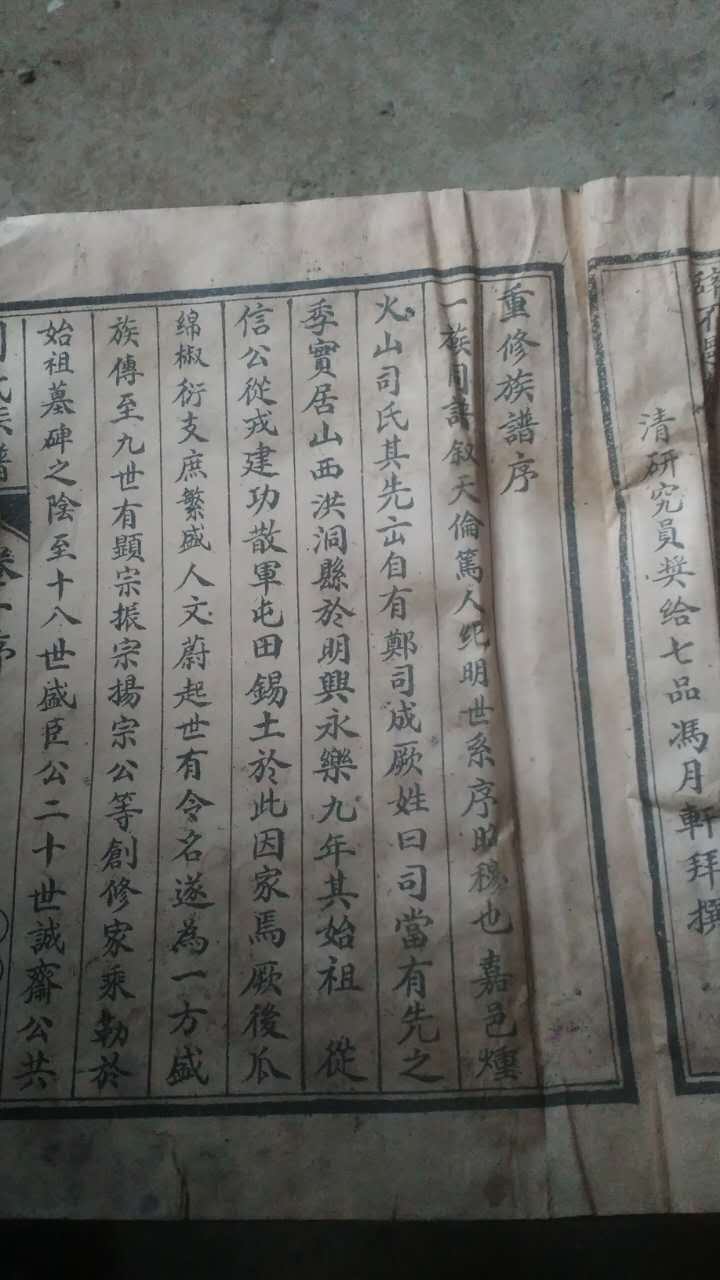 清研究員奬給七品馮月軒拜撰
重修族譜序
一族同譜叙天倫篤人紀明世系序昭穆也嘉邑㸌
火山司氏其先出自有鄭司成厥姓曰司當有先之
季實居山西洪洞縣於明興永樂九年其始祖 從
信公從戎建功散軍屯田錫土於此因家焉厥後瓜
綿椒衍支庶繁盛人文蔚起世有令名遂為一方盛
族傳至九世有顯宗振宗揚宗公等創修家乘勒於
始祖墓碑之陰至十八世盛臣公二十世誠齋公共
司氏族譜 卷一序